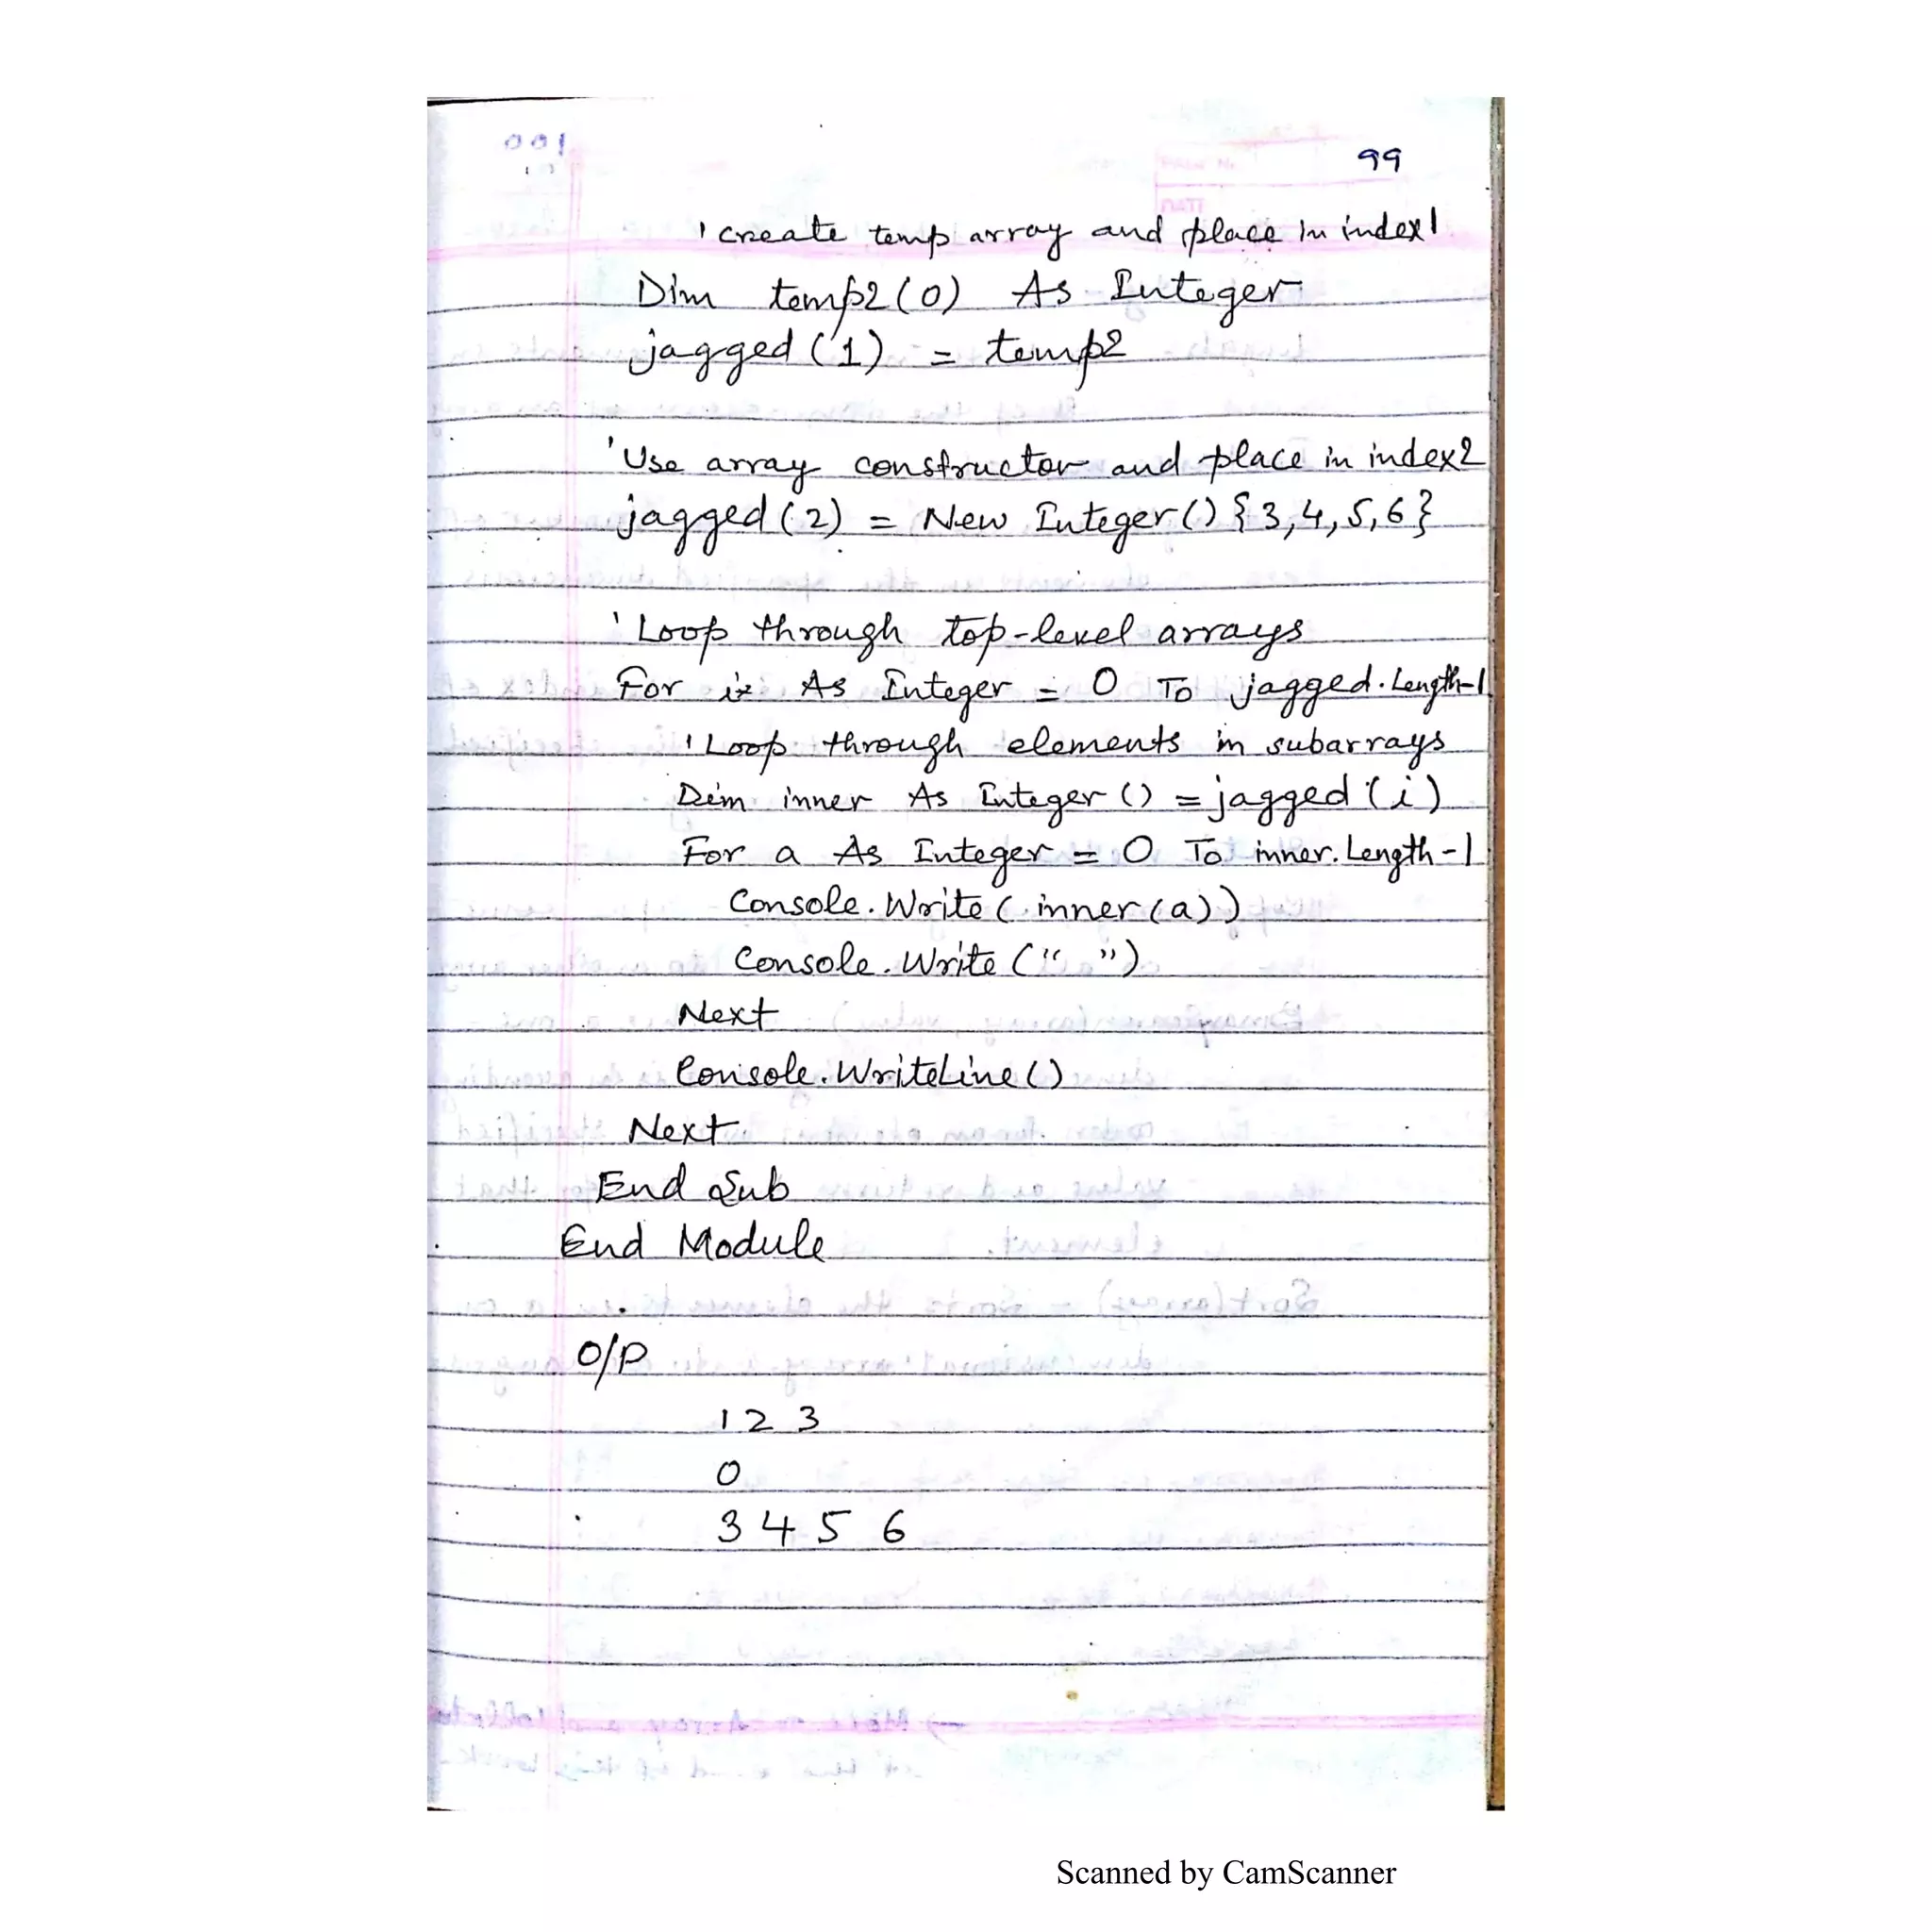 99
'create temp array and place in index1
Dim temp2(0) As Integer
jagged(1) = temp2
'Use array constructor and place in index2
jagged(2) = New Integer() {3,4,5,6}
'Loop through top-level arrays
For i As Integer = 0 To jagged.Length-1
'Loop through elements in subarrays
Dim inner As Integer() = jagged(i)
For a As Integer = 0 To inner.Length-1
Console.Write(inner(a))
Console.Write(" ")
Next
Console.WriteLine()
Next
End Sub
End Module
O/P
1 2 3
0
3 4 5 6
Scanned by CamScanner